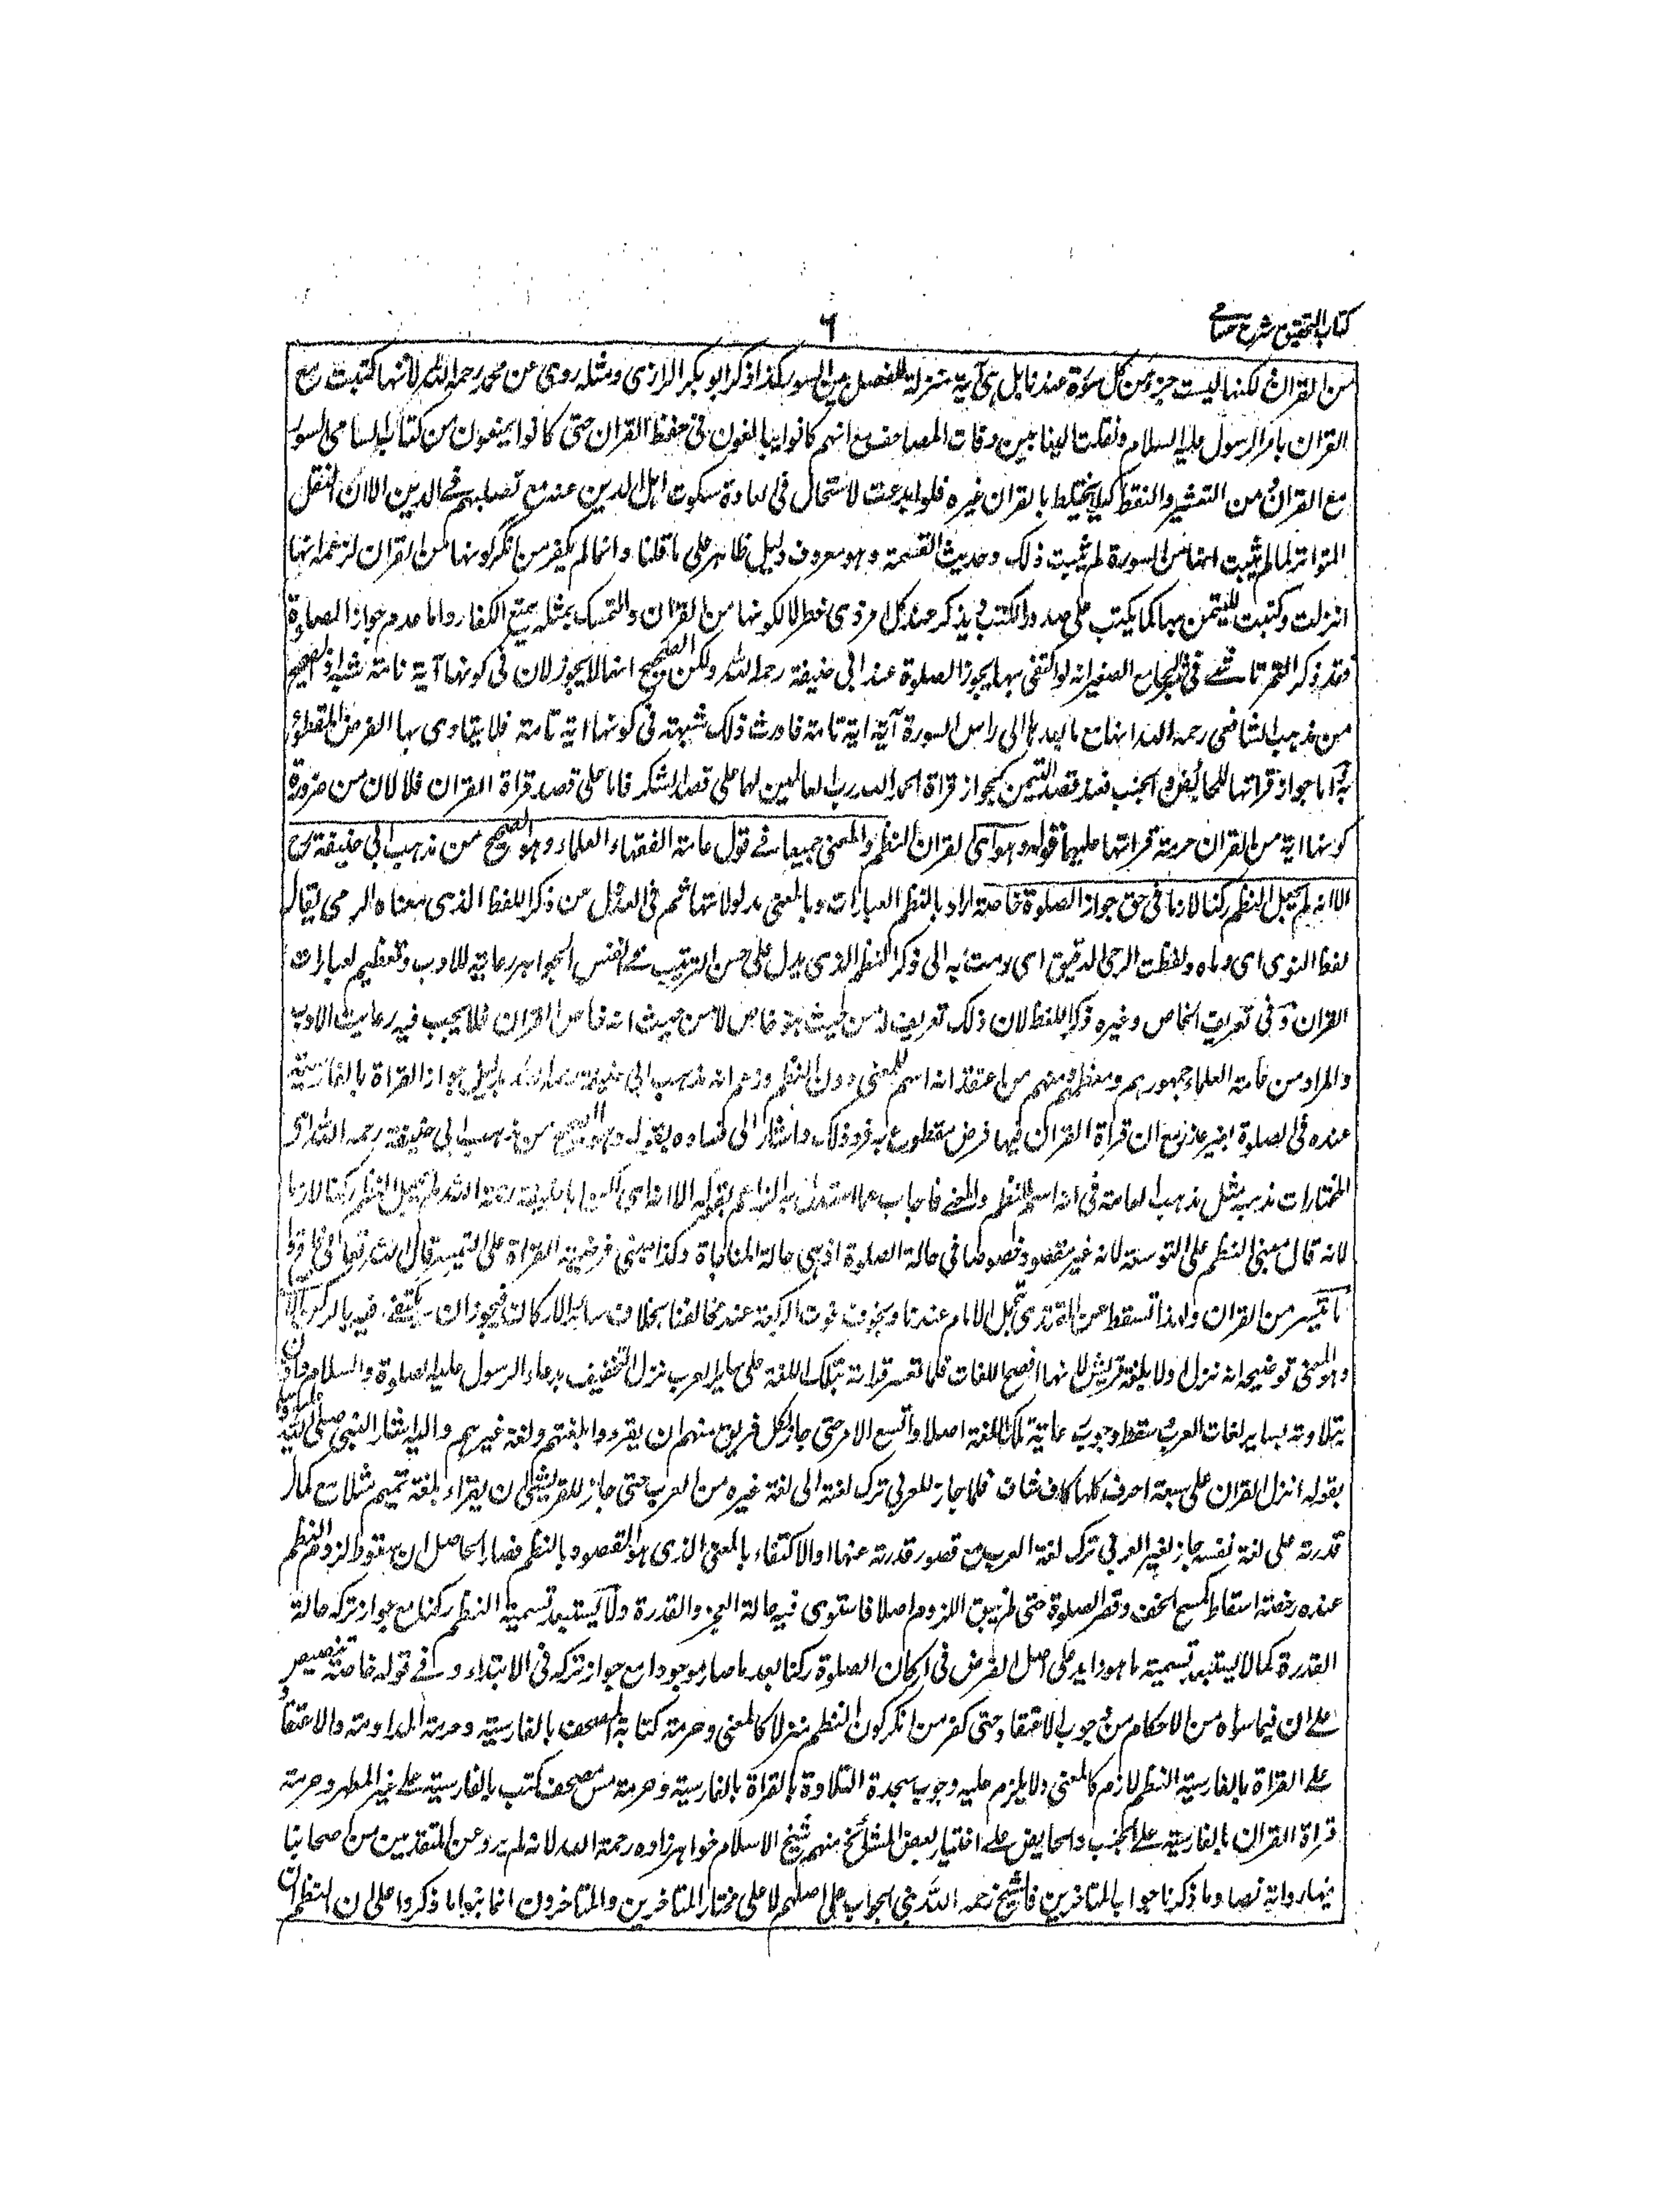 كتاب التحقيق شرح حسامى
٦
من القران لكنها ليست جزءمن كل سورة عندنا بل هى آية منزلة للفصل بين السور كذا ذكر ابو بكر الرازى ومثله روى عن محمد رحمه الله لانها كتبت مع
القران بامر الرسول عليه السلام ونقلت الينا بين دفات المصاحف مع انهم كانوا يبالغون فى حفظ القران حتى كانوا يمنعون من كتابة اسامى السور
مع القران و من التعشير والنقط كيلا يختلط بالقران غيره فلو ابدعت لاستحال فى العادة سكوت اهل الدين عنه مع تصلبهم فے الدين الا ان النقل
المتواتر لما لم يثبت انها من السورة لم يثبت ذلك وحديث القسمة وهو معروف دليل ظاهر على ما قلنا وانما لم يكفر من انكر كونها من القران لزعمه انها
انزلت وكتبت للتيمن بها كما يكتب على صدور الكتب و يذكر عند كل امر ذى خطر لا لكونها من القران والتمسك بمثله يمنع الكفار واما عدم جواز الصلوة
فقد ذكر التمرتاشے فى الجامع الصغير انه لو اكتفى بها يجوز الصلوة عند ابى حنيفة رحمه الله ولكن الصحيح انها لا يجوز لان فى كونها آية تامة شبهة اذ الصحيح
من مذهب الشافعى رحمه الله انها مع ما بعدها الى راس السورة آية تامة فاورث ذلك شبهة فى كونها اية تامة فلا يتادى بها الفرض المقطوع
به اما جواز قراتها للحائض و الجنب فعند قصد التيمن كجواز قراة الحمد لله رب العالمين لهما على قصد الشكر فاما على قصد قراة القران فلا لان من ضرورة
كونها اية من القران حرمة قراتها عليهما قوله وهو اى القران النظم والمعنى جميعا فے قول عامة الفقهاء العلماء وهو الصحيح من مذهب ابى حنيفة رح
الا انه لم يجعل النظم ركنا لازما فى حق جواز الصلوة خاصة اراد بالنظم العبارات وبالمعنى مدلولاتها ثم فى العدول عن ذكر اللفظ الذى معناه الرمى يقال
لفظ النوى اى رماه ولفظت الرحى الدقيق اى رمت به الى ذكر النظم الذى يدل على حسن الترتيب فے انفس الجواهر رعاية للادب وتعظيم لعبارات
القران وفى تعريف الخاص وغيره ذكر اللفظ لان ذلك تعريف له من حيث هو خاص لا من حيث انه خاص القران فلا يجب فيه رعاية الادب
والمراد من عامة العلماء جمهورهم ومعظمهم ومنهم من اعتقد انه اسم للمعنى دون النظم وزعم انه مذهب ابى حنيفة رحمه الله بدليل جواز القراة بالفارسية
عنده فى الصلوة بغير عذر مع ان قراة القران فيها فرض مقطوع به فرد ذلك واشار الى فساده بقوله وهو الصحيح من مذهب ابى حنيفة رحمه الله اى
المختار ان مذهبه مثل مذهب العامة فى انه اسم للنظم والمعنے فاجاب عما استدل به الزاعم بقوله الا انه اى لكن ابا حنيفة رحمه الله لم يجعل النظم ركنا لازما
لانه قال مبنى النظم على التوسعة لانه غير مقصود خصوصا فى حالة الصلوة اذ هى حالة المناجاة وكذا مبنى فرضية القراة على التيسير قال الله تعالى فاقرؤا
ما تيسر من القران ولهذا تسقط عن المقتدى بتحمل الامام عندنا وبخوف فوت الركعة عند مخالفنا بخلاف سائر الاركان فيجوز ان يكتفے فيه بالركن الا
وهو المعنى توضيحه انه نزل اولا بلغة قريش لانها افصح اللغات فلما تعسر قراته بتلك اللغة على ساير العرب نزل التخفيف بدعاء الرسول عليه الصلوة والسلام واذن
بتلاوته بساير لغات العرب و سقط وجوب رعاية تلك اللغة اصلا واتسع الامر حتى جاز لكل فريق منهم ان يقروا بلغتهم ولغة غيرهم واليه اشار النبى صلى الله عليه وسلم
بقوله انزل القران على سبعة احرف كلها كاف شاف فلما جاز للعربى ترك لغته الى لغة غيره من العرب حتى جاز للقريشى ان يقراء بلغة تميم مثلا مع كمال
قدرته على لغة نفسه جاز لغير العربى ترك لغة العرب مع قصور قدرته عنها والاكتفاء بالمعنى الذى هو المقصود بالنظم فصار الحاصل ان سقوط لزوم النظم
عنده رخصة اسقاط كمسح الخف وقصر الصلوة حتى لم يبق اللزوم اصلا فاستوى فيه حالة العجز والقدرة ولا يستبعد تسمية النظم ركنا مع جواز تركه حالة
القدرة كما لا يستبعد تسمية ما هو زايد على اصل الفرض فى اركان الصلوة ركنا بعد ما صار موجودا مع جواز تركه فى الابتداء و فے قوله خاصة تنصيص
علے ان فيما سواه من الاحكام من وجوب الاعتقاد حتى كفر من انكر كون النظم منزلا كالمعنى وحرمة كتابة المصحف بالفارسية وحرمة المداومة والاعتقاد
علے القراة بالفارسية النظم لازم كالمعنى ولا يلزم عليه وجوب سجدة التلاوة بالقراة بالفارسية وحرمة مس مصحف كتب بالفارسية علے غير المطهر وحرمة
قراة القران بالفارسية علے الجنب والحايض علے اختيار بعض المشائخ منهم شيخ الاسلام خواهر زاده رحمة الله لانه لم يرو عن المتقدمين من اصحابنا
فيها رواية نصا وما ذكرنا جواب المتاخرين فالشيخ رحمه الله بنى الجواب على اصلهم لا على مختار المتاخرين والمتاخرون انما بنوا ما ذكروا على ان النظم ان